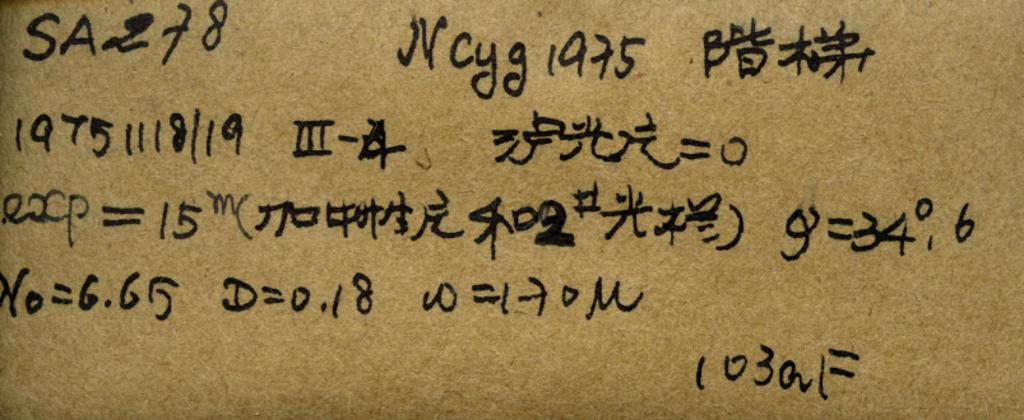 SA278 NCyg 1975 阶梯
19751118/19 III-4 泸光片=0
exp=15ᵐ(加中性片和2#光栏) φ=34°.6
No=6.65 D=0.18 ω=170μ
103aF